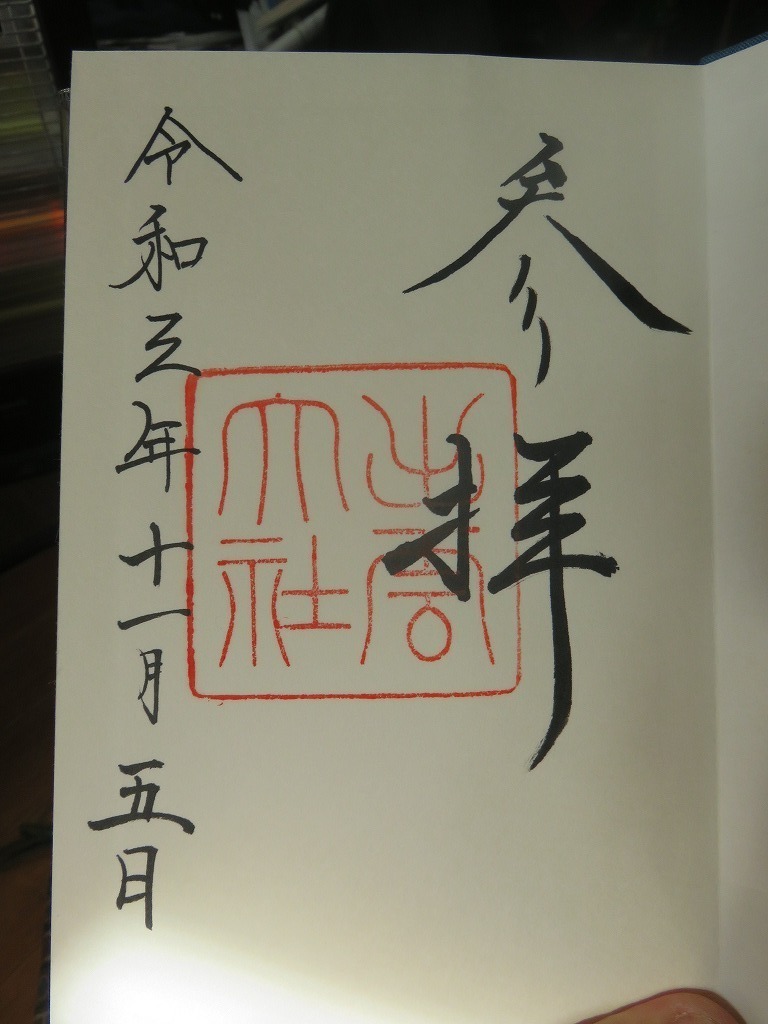 参拝
出雲
大社
令和三年十一月五日